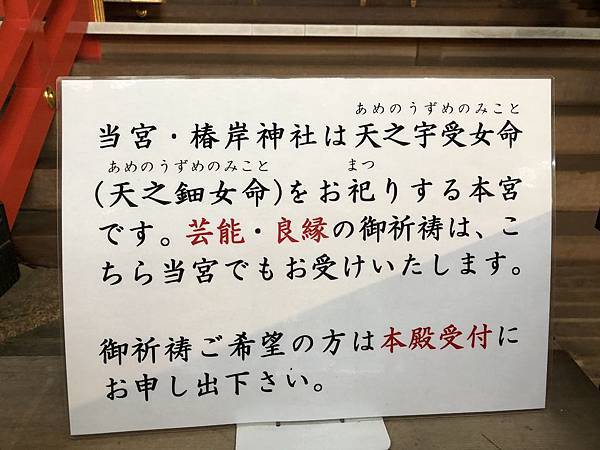 あめのうずめのみこと
当宮・椿岸神社は天之宇受女命
あめのうずめのみこと まつ
(天之鈿女命)をお祀りする本宮
です。芸能・良縁の御祈祷は、こ
ちら当宮でもお受けいたします。
御祈祷ご希望の方は本殿受付に
お申し出下さい。